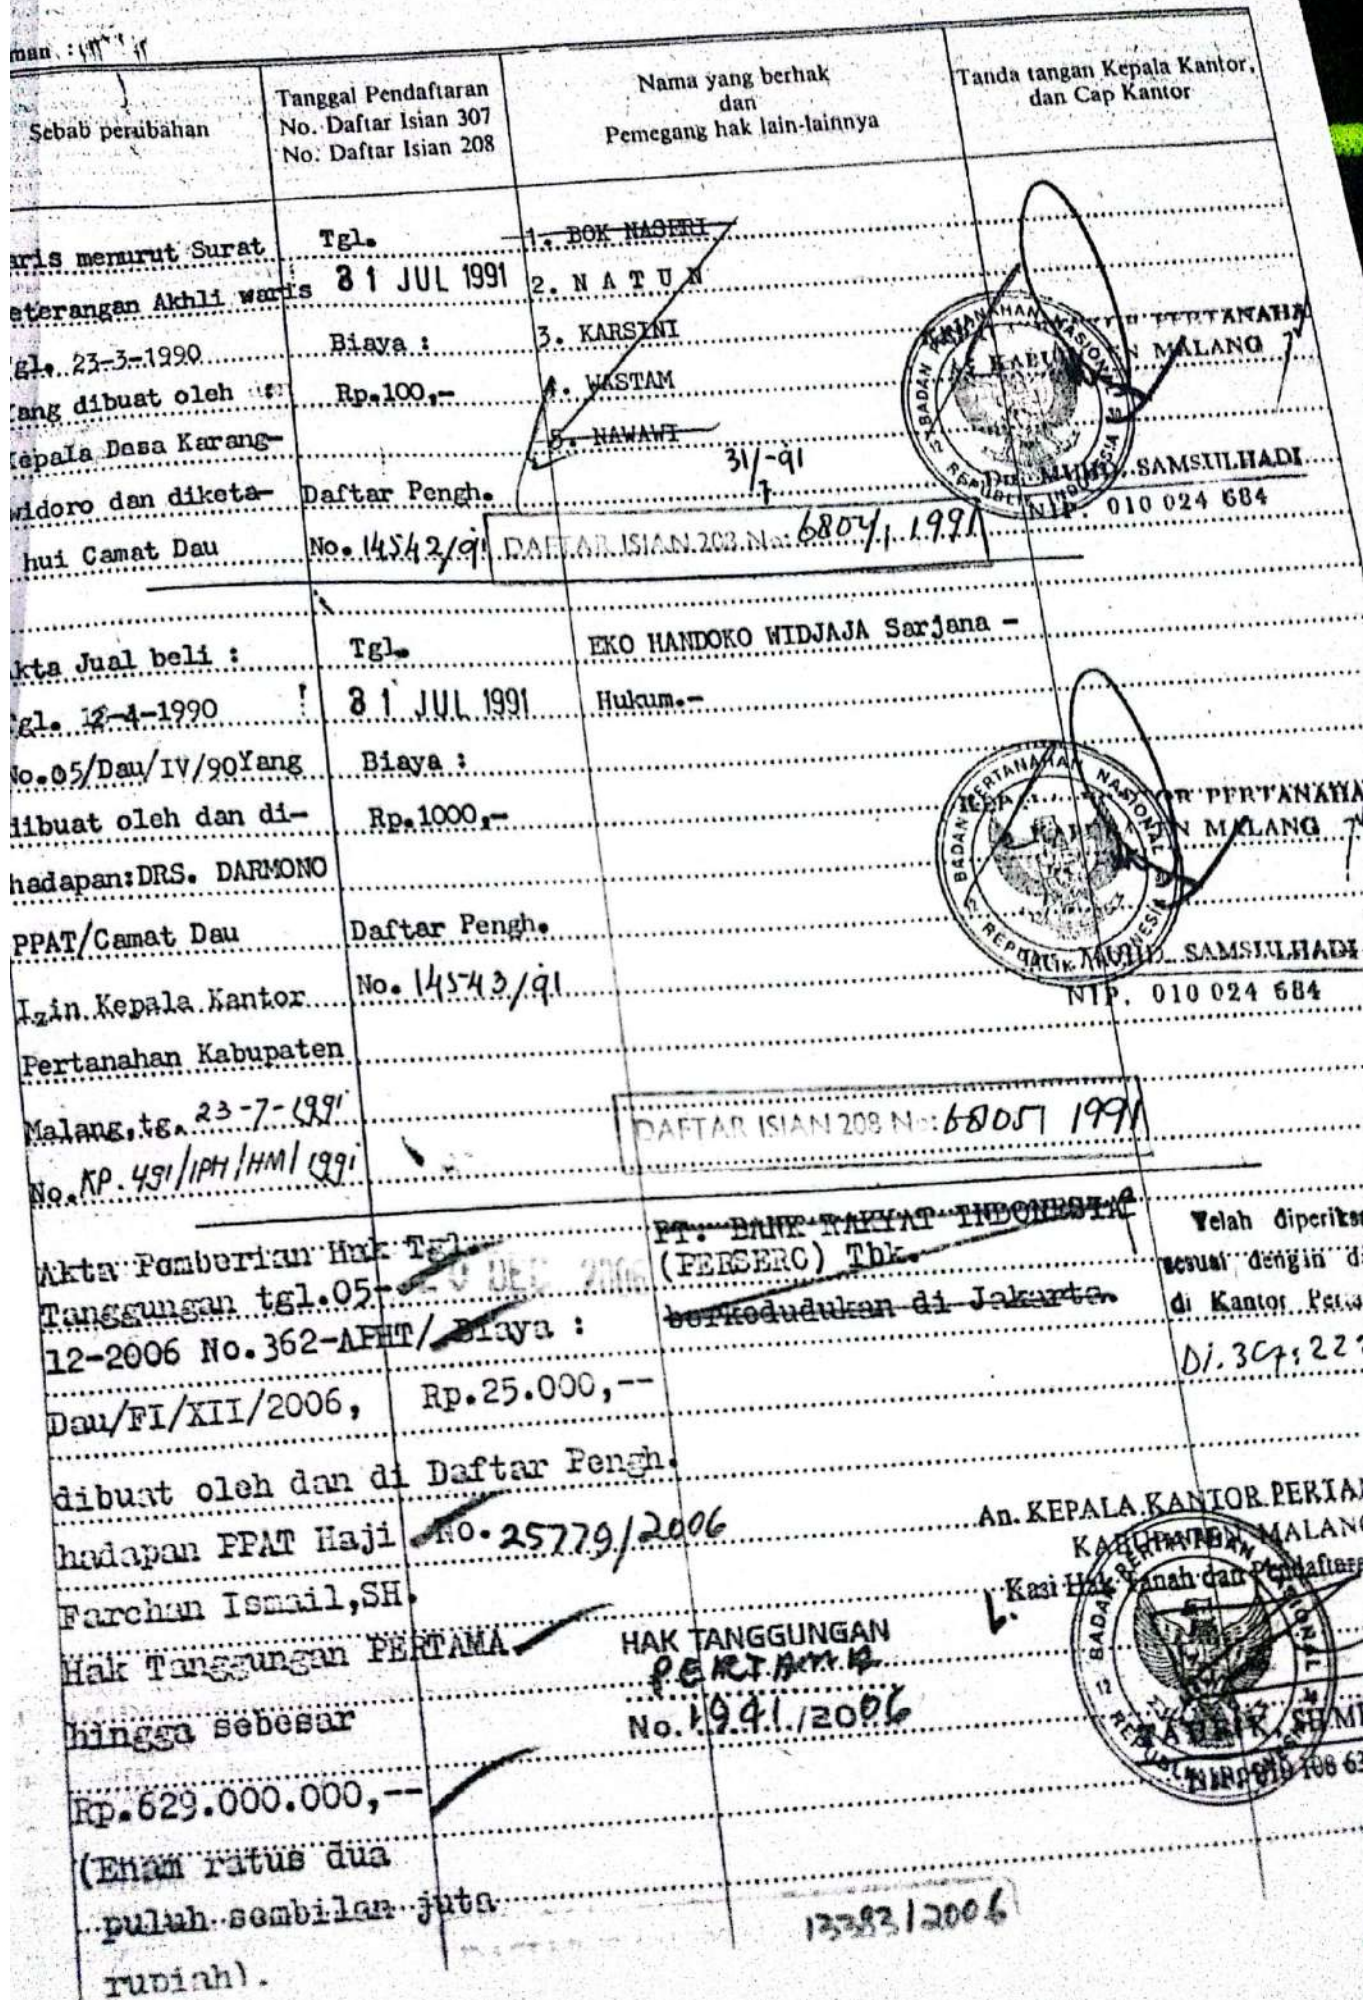 Sebab perubahan
Tanggal Pendaftaran
No. Daftar Isian 307
No. Daftar Isian 208
Nama yang berhak
dan
Pemegang hak lain-lainnya
Tanda tangan Kepala Kantor,
dan Cap Kantor
aris menurut Surat
eterangan Akhli waris
gl. 23-3-1990
ang dibuat oleh :
epala Desa Karang-
widoro dan diketa-
hui Camat Dau
Tgl.
31 JUL 1991
Biaya :
Rp.100,-
Daftar Pengh.
No. 14542/91
1. BOK NASERI
2. N A T U N
3. KARSINI
4. WASTAM
5. NAWAWI
31/7-91
DAFTAR ISIAN 208 No: 6804/1991
PERTANAHA
KABUPATEN MALANG
BADAN PERTANAHAN NASIONAL
REPUBLIK INDONESIA
Drs. MUHD. SAMSULHADI
NIP. 010 024 684
kta Jual beli :
gl. 12-4-1990
No.05/Dau/IV/90 Yang
dibuat oleh dan di-
hadapan:DRS. DARMONO
PPAT/Camat Dau
Izin Kepala Kantor
Pertanahan Kabupaten
Malang,tg. 23-7-1991
No. KP.491/IPH/HM/1991
Tgl.
31 JUL 1991
Biaya :
Rp.1000,-
Daftar Pengh.
No. 14543/91
EKO HANDOKO WIDJAJA Sarjana -
Hukum.-
DAFTAR ISIAN 208 No: 6805/1991
OR PERTANAHA
KABUPATEN MALANG
BADAN PERTANAHAN NASIONAL
REPUBLIK INDONESIA
MUHD. SAMSULHADI
NIP. 010 024 684
Akta Pemberian Hak
Tanggungan tgl.05-
12-2006 No.362-APHT/
Dau/FI/XII/2006,
dibuat oleh dan di
hadapan PPAT Haji
Farchan Ismail,SH.
Hak Tanggungan PERTAMA
hingga sebesar
Rp.629.000.000,--
(Enam ratus dua
puluh sembilan juta
rupiah).
Tgl.
20 DEC 2006
Biaya :
Rp.25.000,--
Daftar Pengh.
No. 25779/2006
PT. BANK RAKYAT INDONESIA
(PERSERO) Tbk.
berkedudukan di Jakarta.
HAK TANGGUNGAN
PERTAMA
No. 1941/2006
13383/2006
Telah diperiksa
sesuai dengin
di Kantor
An. KEPALA KANTOR PERTAN
KABUPATEN MALANG
Kasi Hak Tanah dan Pendaftara
BADAN PERTANAHAN NASIONAL
REPUBLIK INDONESIA